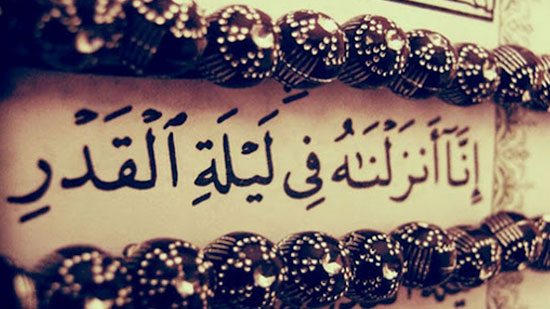 إِنَّآ أَنزَلْنَـٰهُ فِى لَيْلَةِ ٱلْقَدْرِ